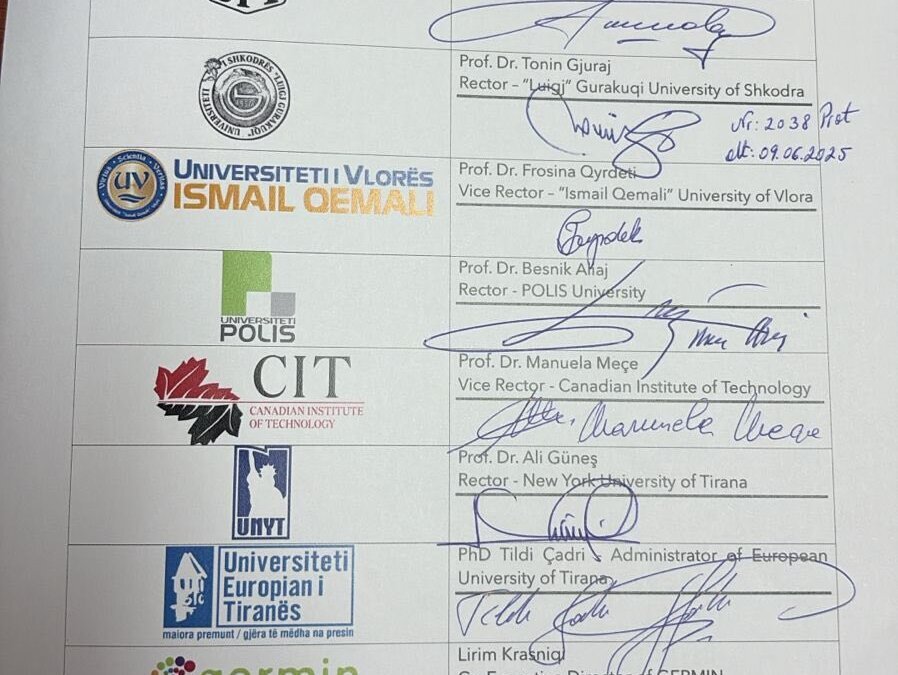 Prof. Dr. Tonin Gjuraj
Rector – "Luigj" Gurakuqi University of Shkodra
UNIVERSITETI I SHKODRËS "LUIGJ GURAKUQI"
Nr: 2038 Prot
dt: 09.06.2025
Virtus • Scientia • Veritas
UV
UNIVERSITETI I VLORËS
ISMAIL QEMALI
Prof. Dr. Frosina Qyrdeti
Vice Rector – "Ismail Qemali" University of Vlora
UNIVERSITETI
POLIS
Prof. Dr. Besnik Aliaj
Rector - POLIS University
CIT
CANADIAN INSTITUTE
OF TECHNOLOGY
Prof. Dr. Manuela Meçe
Vice Rector - Canadian Institute of Technology
Manuela Meçe
UNYT
Prof. Dr. Ali Güneş
Rector - New York University of Tirana
Universiteti
Europian i
Tiranës
maiora premunt / gjëra të mëdha na presin
PhD Tildi Çadri - Administrator of European
University of Tirana
germin
Lirim Krasniqi
Co-Executive Director of GERMIN